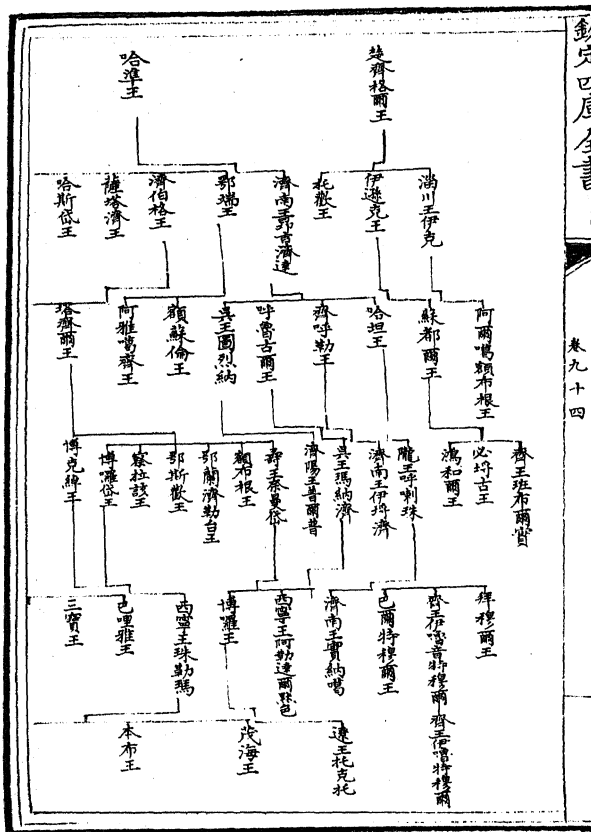 欽定四庫全書
卷九十四
楚齊格爾王
哈準王
淄川王伊克
伊遜克王
托歡王
濟南王昻吉濟達
鄂瑞王
濟伯格王
薩塔濟王
哈斯岱王
阿爾噶額布根王
蘇都爾王
哈坦王
齊呼勒王
呼魯古爾王
吳王圖烈納
額蘇倫王
阿雅噶齊王
塔齊爾王
齊王班布爾實
必埒古王
鴻和爾王
隴王呼喇珠
濟南王伊埒濟
吳王瑪納濟
濟陽王普爾普
額布根王
鄂蘭濟勒台王
鄂斯歡王
察拉該王
博囉岱王
博克綽王
拜穆爾王
齊王伊嚕特穆爾
巴爾特穆爾王
濟南王實納噶
西寧王阿勒達爾默色
博囉王
西寧王珠勒瑪
巴哩雅王
三寶王
遼王托克托
茂海王
本布王